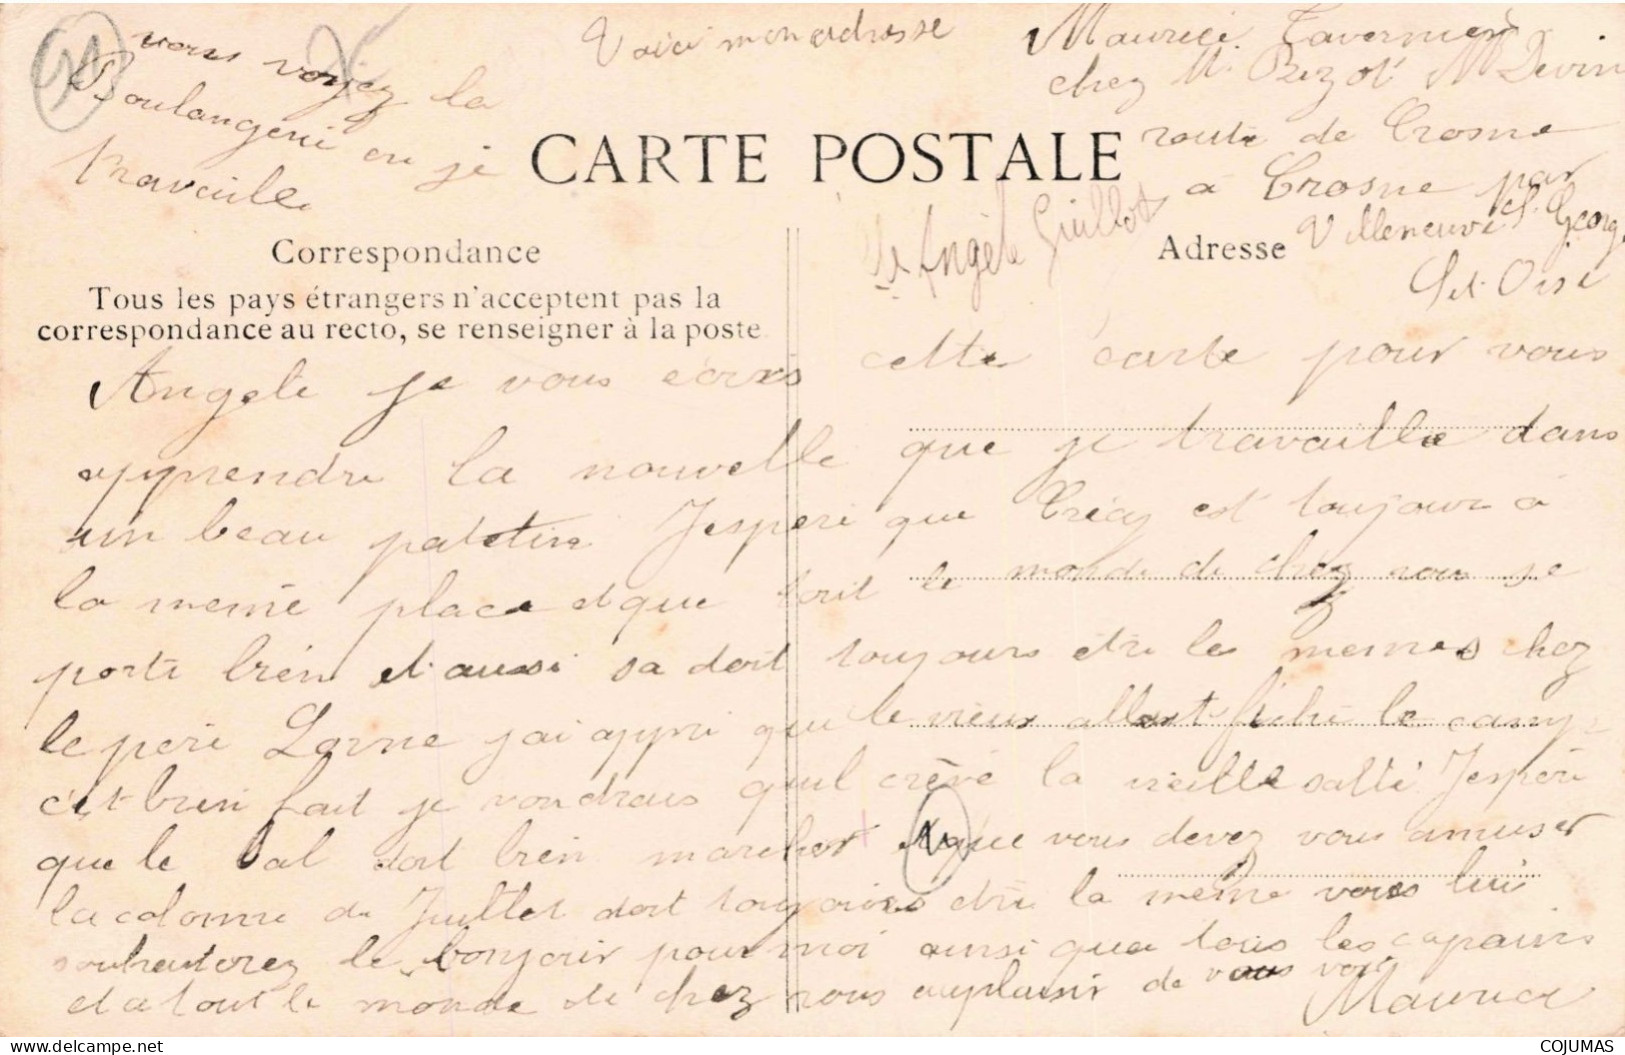 vous voyez la
Boulangerie ou je
travaille
Voici mon adresse
Maurice Tavernier
chez M. Bezot Md Devin
route de Crosne
à Crosne par
Villeneuve St Georg
Set Oise
CARTE POSTALE
Correspondance
Tous les pays étrangers n'acceptent pas la
correspondance au recto, se renseigner à la poste
Adresse
Angèle Guillot
Angele je vous écris cette carte pour vous
apprendre la nouvelle que je travaille dans
un beau patelin Jespere que Crécy est toujour à
la meme place et que tout le monde de chez nous se
porte bien et aussi sa doit toujours etre les memes chez
le pere Lorne jai appri que le vieux allait fiche le camp
c'et bien fait je voudrais quil crève la vieille salle Jespère
que le bal doit bien marcher et que vous devez vous amuser
la colonne de Juillet doit toujours etre la meme vous lui
souhaiterez le bonjour pour moi ainsi que tous les copains
et a tout le monde de chez nous au plaisir de vous voir
Maurice
COJUMAS